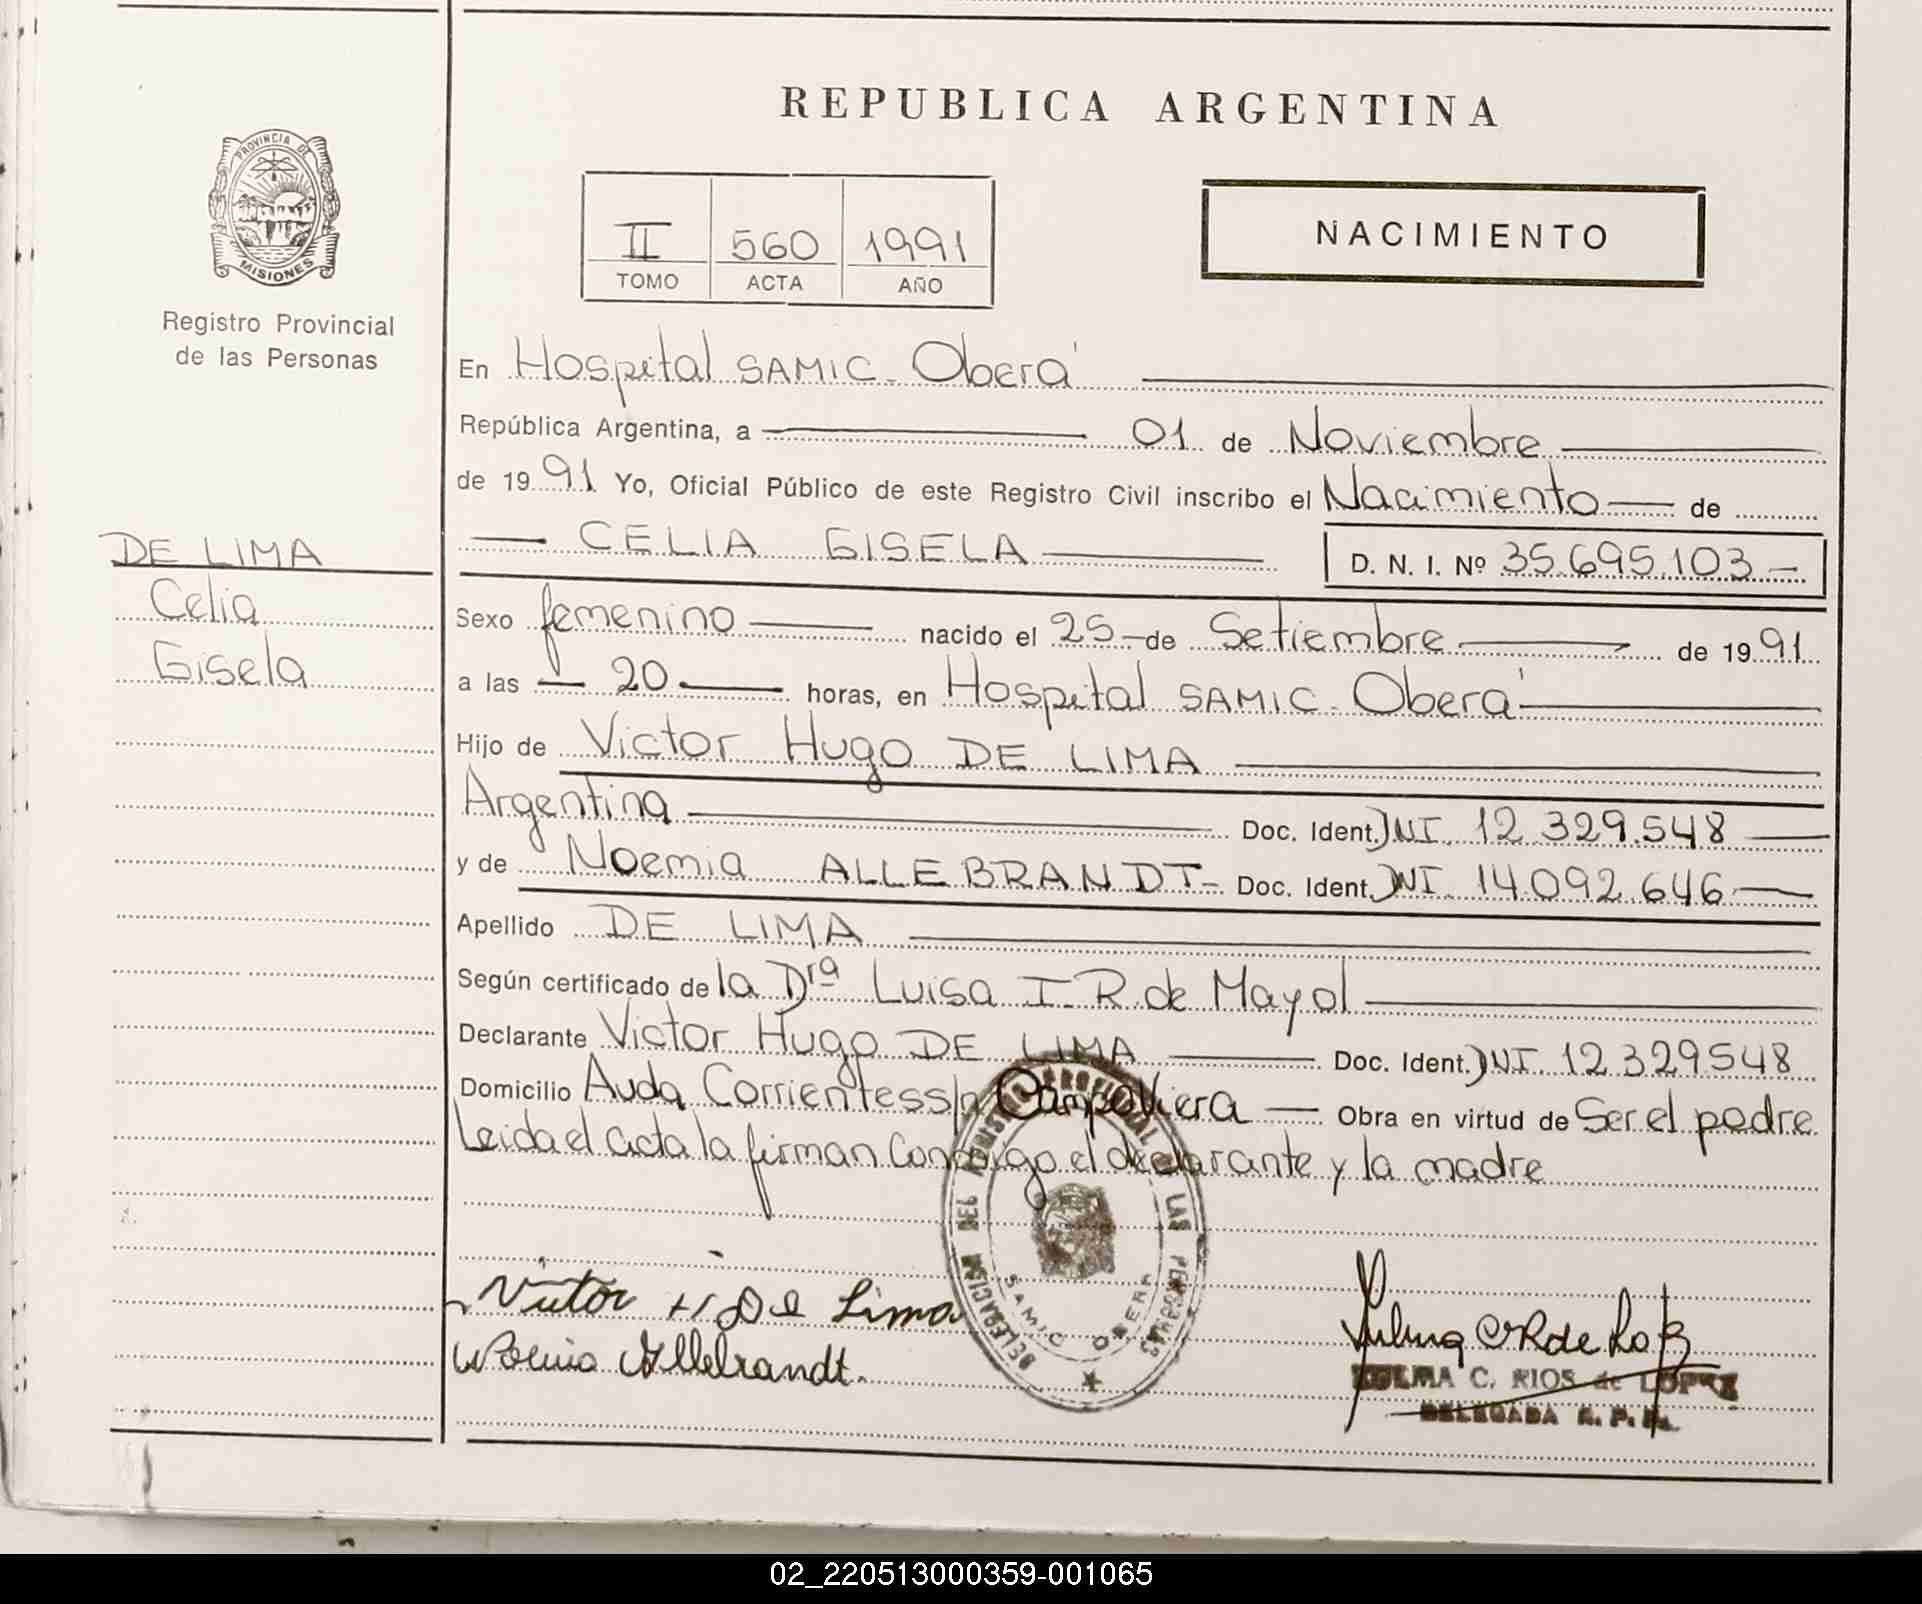 REPUBLICA ARGENTINA
PROVINCIA DE
MISIONES
Registro Provincial
de las Personas
II 560 1991
TOMO ACTA AÑO
NACIMIENTO
En Hospital SAMIC - Oberá
República Argentina, a 01 de Noviembre
de 1991 Yo, Oficial Público de este Registro Civil inscribo el Nacimiento de
CELIA GISELA D. N. I. Nº 35.695.103
DE LIMA
Celia
Gisela
Sexo femenino nacido el 25 de Setiembre de 1991
a las 20 horas, en Hospital SAMIC - Oberá
Hijo de Victor Hugo DE LIMA
Argentina Doc. Ident. DNI 12.329.548
y de Noemia ALLEBRANDT Doc. Ident. DNI 14.092.646
Apellido DE LIMA
Según certificado de la Drª Luisa I. R. de Mayol
Declarante Victor Hugo DE LIMA Doc. Ident. DNI 12329548
Domicilio Avda Corrientes s/n Campo Viera Obra en virtud de Ser el padre
Leida el acta la firman Conmigo el declarante y la madre
DELEGACION DEL REGISTRO PROVINCIAL DE LAS PERSONAS
SAMIC OBERA
Victor H De Lima
Noemia Allebrandt.
ZULMA C. RIOS de LOPEZ
DELEGADA R. P. P.
02_220513000359-001065